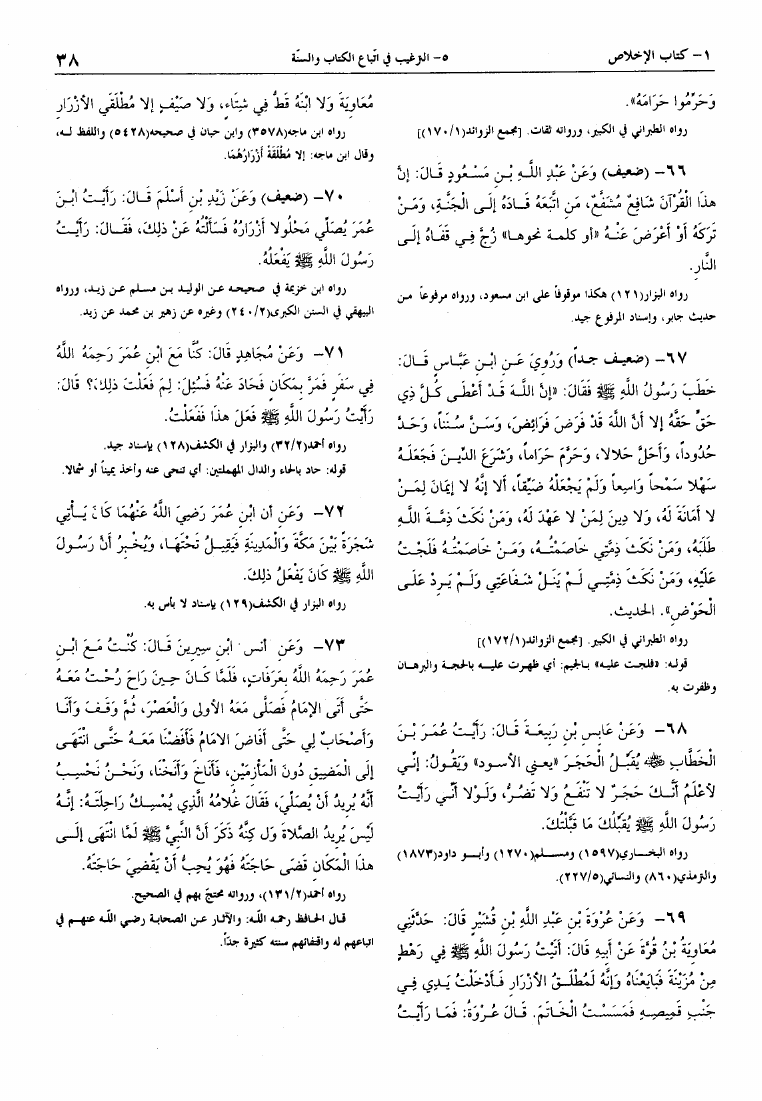 ١- كتاب الإخلاص
٥- الترغيب في اتباع الكتاب والسنّة
٣٨
وَحَرِّمُوا حَرَامَهُ».
رواه الطبراني في الكبير، ورواته ثقات. [مجمع الزوائد(١/ ١٧٠)]
٦٦- (ضعيف) وَعَنْ عَبْدِ اللَّهِ بْنِ مَسْعُودٍ قَالَ: إِنَّ
هذَا الْقُرْآنَ شَافِعٌ مُشَفَّعٌ، مَنِ اتَّبَعَهُ قَادَهُ إِلَى الْجَنَّةِ، وَمَنْ
تَرَكَهُ أَوْ أَعْرَضَ عَنْهُ «أو كلمة نحوها» زُجَّ فِي قَفَاهُ إِلَى
النَّارِ.
رواه البزار(١٢١) هكذا موقوفاً على ابن مسعود، ورواه مرفوعاً من
حديث جابر، وإسناد المرفوع جيد.
٦٧- (ضعيف جداً) وَرُوِيَ عَنِ ابْنِ عَبَّاسٍ قَالَ:
خَطَبَ رَسُولُ اللَّهِ ﷺ فَقَالَ: «إِنَّ اللَّهَ قَدْ أَعْطَى كُلَّ ذِي
حَقٍّ حَقَّهُ إلا أَنَّ اللَّهَ قَدْ فَرَضَ فَرَائِضَ، وَسَنَّ سُنَناً، وَحَدَّ
حُدُوداً، وَأَحَلَّ حَلالا، وَحَرَّمَ حَرَاماً، وَشَرَعَ الدِّينَ فَجَعَلَهُ
سَهْلا سَمْحاً وَاسِعاً وَلَمْ يَجْعَلْهُ ضَيِّقاً، أَلا إِنَّهُ لا إِيمَانَ لِمَنْ
لا أَمَانَةَ لَهُ، وَلا دِينَ لِمَنْ لا عَهْدَ لَهُ، وَمَنْ نَكَثَ ذِمَّةَ اللَّهِ
طَلَبَهُ، وَمَنْ نَكَثَ ذِمَّتِي خَاصَمْتُهُ، وَمَنْ خَاصَمْتُهُ فَلَجْتُ
عَلَيْهِ، وَمَنْ نَكَثَ ذِمَّتِي لَمْ يَنَلْ شَفَاعَتِي وَلَمْ يَرِدْ عَلَى
الْحَوْضِ». الحديث.
رواه الطبراني في الكبير. [مجمع الزوائد(١/ ١٧٢)]
قوله: «فلجت عليه» بالجيم: أي ظهرت عليه بالحجة والبرهان
وظفرت به.
٦٨- وَعَنْ عَابِسِ بْنِ رَبِيعَةَ قَالَ: رَأَيْتُ عُمَرَ بْنَ
الْخَطَّابِ ﷺ يُقَبِّلُ الْحَجَرَ «يعني الأسود» وَيَقُولُ: إِنِّي
لأَعْلَمُ أَنَّكَ حَجَرٌ لا تَنْفَعُ وَلا تَضُرُّ، وَلَوْلا أَنِّي رَأَيْتُ
رَسُولَ اللَّهِ ﷺ يُقَبِّلُكَ مَا قَبَّلْتُكَ.
رواه البخاري(١٥٩٧) ومسلم(١٢٧٠) وأبو داود(١٨٧٣)
والترمذي(٨٦٠) والنسائي(٥/ ٢٢٧).
٦٩- وَعَنْ عُرْوَةَ بْنِ عَبْدِ اللَّهِ بْنِ قُشَيْرٍ قَالَ: حَدَّثَنِي
مُعَاوِيَةُ بْنُ قُرَّةَ عَنْ أَبِيهِ قَالَ: أَتَيْتُ رَسُولَ اللَّهِ ﷺ فِي رَهْطٍ
مِنْ مُزَيْنَةَ فَبَايَعْنَاهُ وَإِنَّهُ لَمُطْلَقُ الأَزْرَارِ فَأَدْخَلْتُ يَدِي فِي
جَنْبِ قَمِيصِهِ فَمَسَسْتُ الْخَاتَمَ. قَالَ عُرْوَةُ: فَمَا رَأَيْتُ
مُعَاوِيَةَ وَلا ابْنَهُ قَطُّ فِي شِتَاءٍ، وَلا صَيْفٍ إلا مُطْلَقَي الأَزْرَارِ
رواه ابن ماجه(٣٥٧٨) وابن حبان في صحيحه(٥٤٢٨) واللفظ له،
وقال ابن ماجه: إلا مُطْلَقَةً أَزْرَارُهُمَا.
٧٠- (ضعيف) وَعَنْ زَيْدِ بْنِ أَسْلَمَ قَالَ: رَأَيْتُ ابْنَ
عُمَرَ يُصَلِّي مَحْلُولا أَزْرَارُهُ فَسَأَلْتُهُ عَنْ ذلِكَ، فَقَالَ: رَأَيْتُ
رَسُولَ اللَّهِ ﷺ يَفْعَلُهُ.
رواه ابن خزيمة في صحيحه عن الوليد بن مسلم عن زيد، ورواه
البيهقي في السنن الكبرى(٢/ ٢٤٠) وغيره عن زهير بن محمد عن زيد.
٧١- وَعَنْ مُجَاهِدٍ قَالَ: كُنَّا مَعَ ابْنِ عُمَرَ رَحِمَهُ اللَّهُ
فِي سَفَرٍ فَمَرَّ بِمَكَانٍ فَحَادَ عَنْهُ فَسُئِلَ: لِمَ فَعَلْتَ ذلِكَ؟ قَالَ:
رَأَيْتُ رَسُولَ اللَّهِ ﷺ فَعَلَ هذَا فَفَعَلْتُ.
رواه أحمد(٢/ ٣٢) والبزار في الكشف(١٢٨) بإسناد جيد.
قوله: حاد بالحاء والدال المهملتين: أي تنحى عنه وأخذ يميناً أو شمالا.
٧٢- وَعَنِ ابْنِ عُمَرَ رَضِيَ اللَّهُ عَنْهُمَا أن كَانَ يَأْتِي
شَجَرَةً بَيْنَ مَكَّةَ وَالْمَدِينَةِ فَيَقِيلُ تَحْتَهَا، وَيُخْبِرُ أَنَّ رَسُولَ
اللَّهِ ﷺ كَانَ يَفْعَلُ ذلِكَ.
رواه البزار في الكشف(١٢٩) بإسناد لا بأس به.
٧٣- وَعَنِ أنس ابْنِ سِيرِينَ قَالَ: كُنْتُ مَعَ ابْنِ
عُمَرَ رَحِمَهُ اللَّهُ بِعَرَفَاتٍ، فَلَمَّا كَانَ حِينَ رَاحَ رُحْتُ مَعَهُ
حَتَّى أَتَى الإِمَامُ فَصَلَّى مَعَهُ الأُولَى وَالْعَصْرَ، ثُمَّ وَقَفَ وَأَنَا
وَأَصْحَابٌ لِي حَتَّى أَفَاضَ الامَامُ فَأَفَضْنَا مَعَهُ حَتَّى انْتَهَى
إِلَى الْمَضِيقِ دُونَ الْمَأْزِمَيْنِ، فَأَنَاخَ وَأَنَخْنَا، وَنَحْنُ نَحْسِبُ
أَنَّهُ يُرِيدُ أَنْ يُصَلِّيَ، فَقَالَ غُلامُهُ الَّذِي يُمْسِكُ رَاحِلَتَهُ: إِنَّهُ
لَيْسَ يُرِيدُ الصَّلاةَ وَل كِنَّهُ ذَكَرَ أَنَّ النَّبِيَّ ﷺ لَمَّا انْتَهَى إِلَى
هذَا الْمَكَانِ قَضَى حَاجَتَهُ فَهُوَ يُحِبُّ أَنْ يَقْضِيَ حَاجَتَهُ.
رواه أحمد(٢/ ١٣١)، ورواته محتج بهم في الصحيح.
قال الحافظ رحمه الله: والآثار عن الصحابة رضي الله عنهم في
اتباعهم له واقتفائهم سنته كثيرة جدّاً.